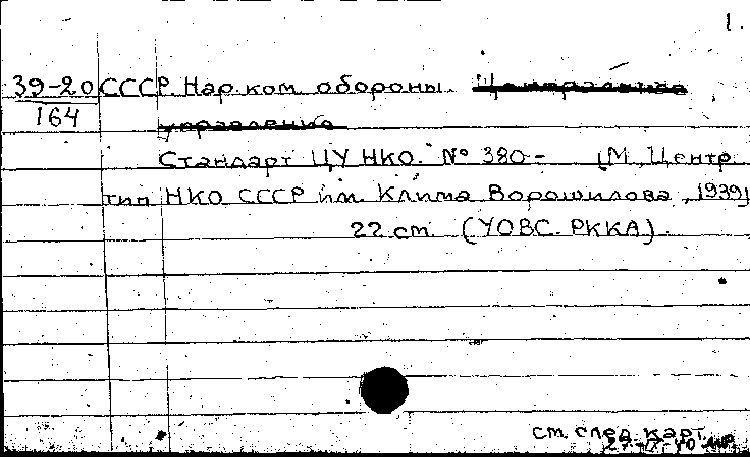 1.
39-20 СССР. Нар. ком. обороны. Центральное
164
управление
Стандарт ЦУ НКО. № 380- [М., Центр.
тип. НКО СССР им. Клима Ворошилова, 1939]
22 cm. (УОВС. РККА).
см. след. карт.